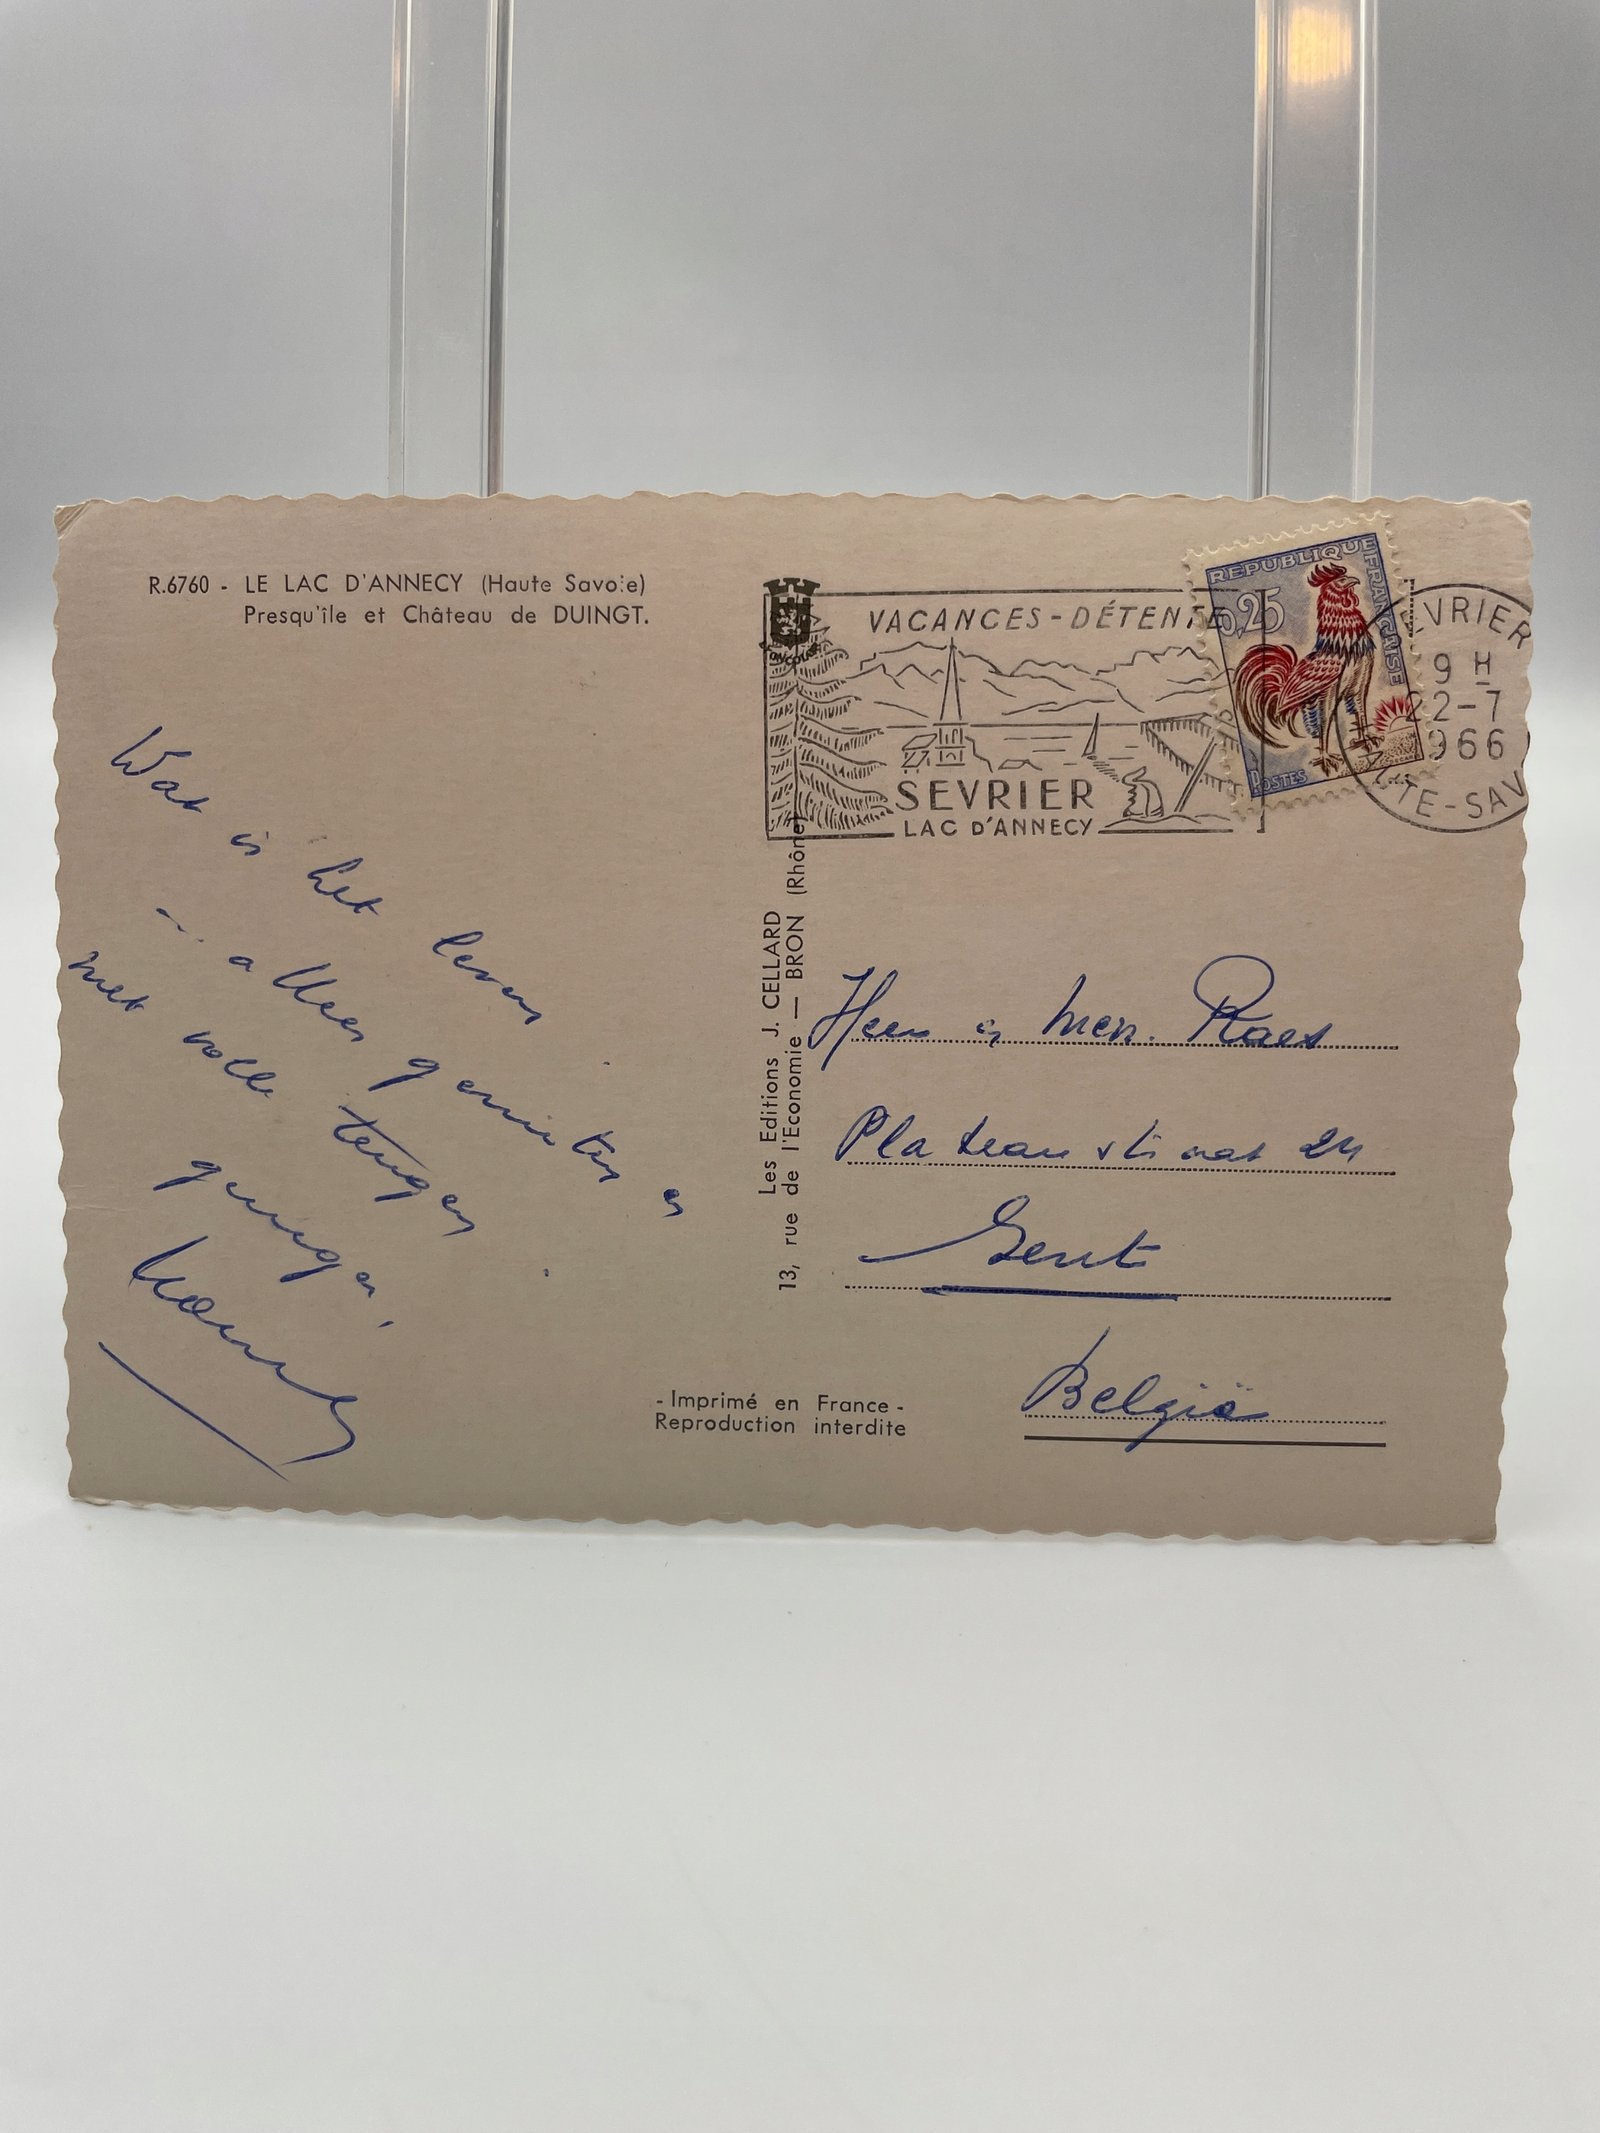 R.6760 - LE LAC D'ANNECY (Haute Savoie)
Presqu'île et Château de DUINGT.
Wat is het leven
allen genieten en
met volle teugen
Les Editions J. CELLARD
13, rue de l'Economie — BRON (Rhône)
- Imprimé en France -
Reproduction interdite
VACANCES-DÉTENTE
SEVRIER
LAC D'ANNECY
REPUBLIQUE FRANÇAISE
0,25
POSTES
EVRIER
9 H
22-7
966
TE-SAV
Heer en Mev. Raes
Plateaustraat 24
Gent
België